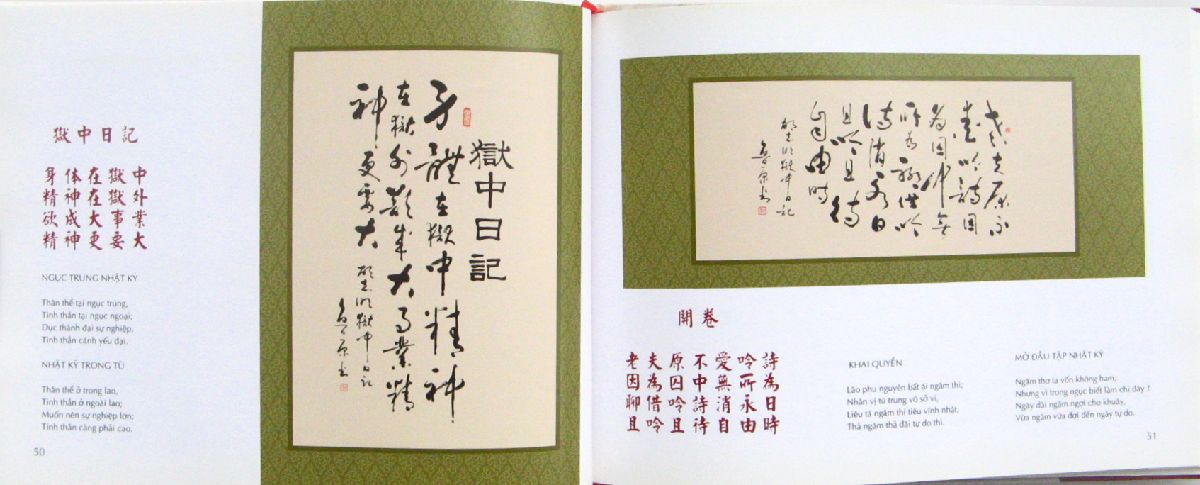 獄中日記
身体在獄中
精神在獄外
欲成大事業
精神更要大
NGỤC TRUNG NHẬT KÝ
Thân thể tại ngục trung,
Tinh thần tại ngục ngoại;
Dục thành đại sự nghiệp,
Tinh thần cánh yếu đại.
NHẬT KÝ TRONG TÙ
Thân thể ở trong lao,
Tinh thần ở ngoài lao;
Muốn nên sự nghiệp lớn;
Tinh thần càng phải cao.
50
獄中日記
身體在獄中精神
在獄外欲成大事業精
神更要大
胡志明獄中日記
老夫原不
愛吟詩因
為囚中無
所為聊借吟
詩消永日
且吟且待
自由時
胡志明獄中日記
開卷
老夫原不愛吟詩
因為囚中無所為
聊借吟詩消永日
且吟且待自由時
KHAI QUYỂN
Lão phu nguyên bất ái ngâm thi;
Nhân vị tù trung vô sở vi,
Liêu tá ngâm thi tiêu vĩnh nhật,
Thả ngâm thả đãi tự do thì.
MỞ ĐẦU TẬP NHẬT KÝ
Ngâm thơ ta vốn không ham;
Nhưng vì trong ngục biết làm chi đây ?
Ngày dài ngâm ngợi cho khuây,
Vừa ngâm vừa đợi đến ngày tự do.
51